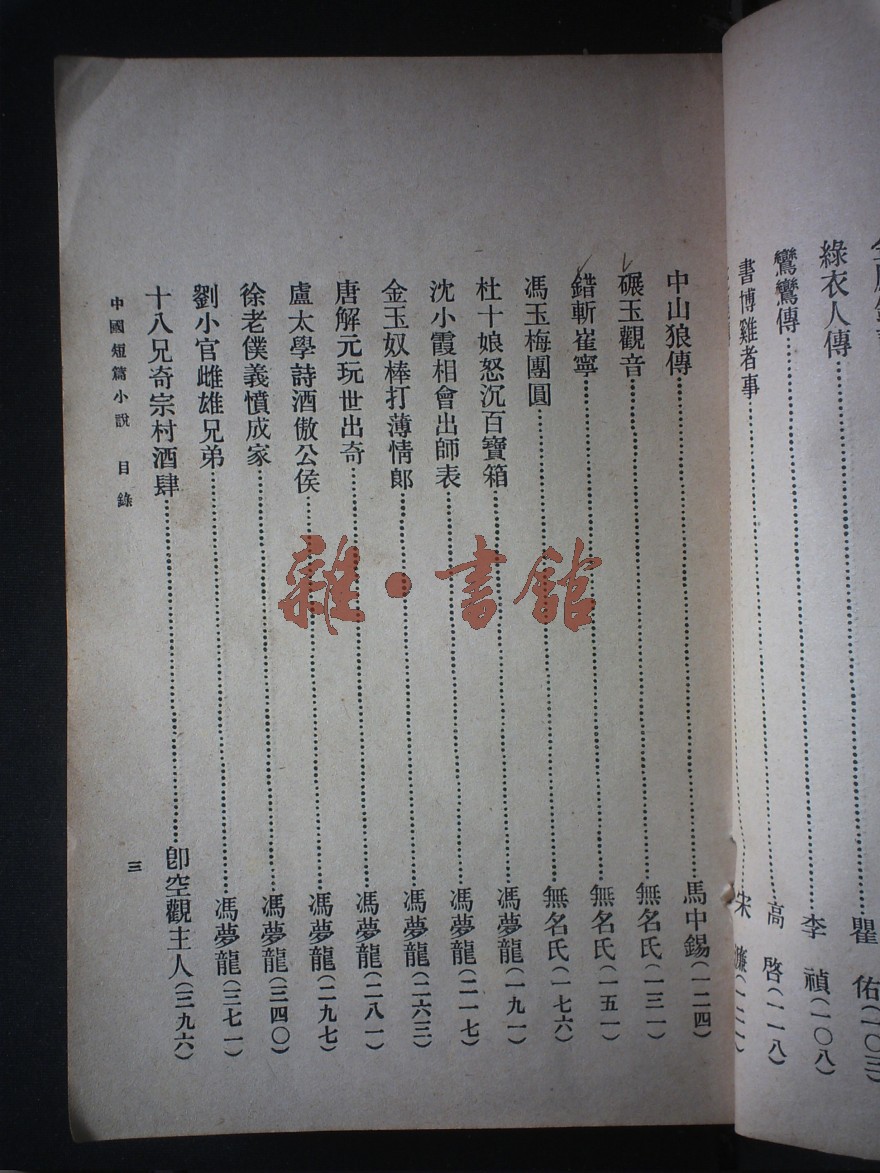 綠衣人傳……瞿　佑(一〇三)
鸞鸞傳……李　禎(一〇八)
書博雞者事……高　啓(一一八)
宋　濂(一二一)
中山狼傳……馬中錫(一二四)
碾玉觀音……無名氏(一三一)
錯斬崔寧……無名氏(一五一)
馮玉梅團圓……無名氏(一七六)
杜十娘怒沉百寶箱……馮夢龍(一九一)
沈小霞相會出師表……馮夢龍(二一七)
金玉奴棒打薄情郎……馮夢龍(二六三)
唐解元玩世出奇……馮夢龍(二八一)
盧太學詩酒傲公侯……馮夢龍(二九七)
徐老僕義憤成家……馮夢龍(三四〇)
劉小官雌雄兄弟……馮夢龍(三七一)
十八兄奇宗村酒肆……卽空觀主人(三九六)
中國短篇小說　目錄　三
雜·書館